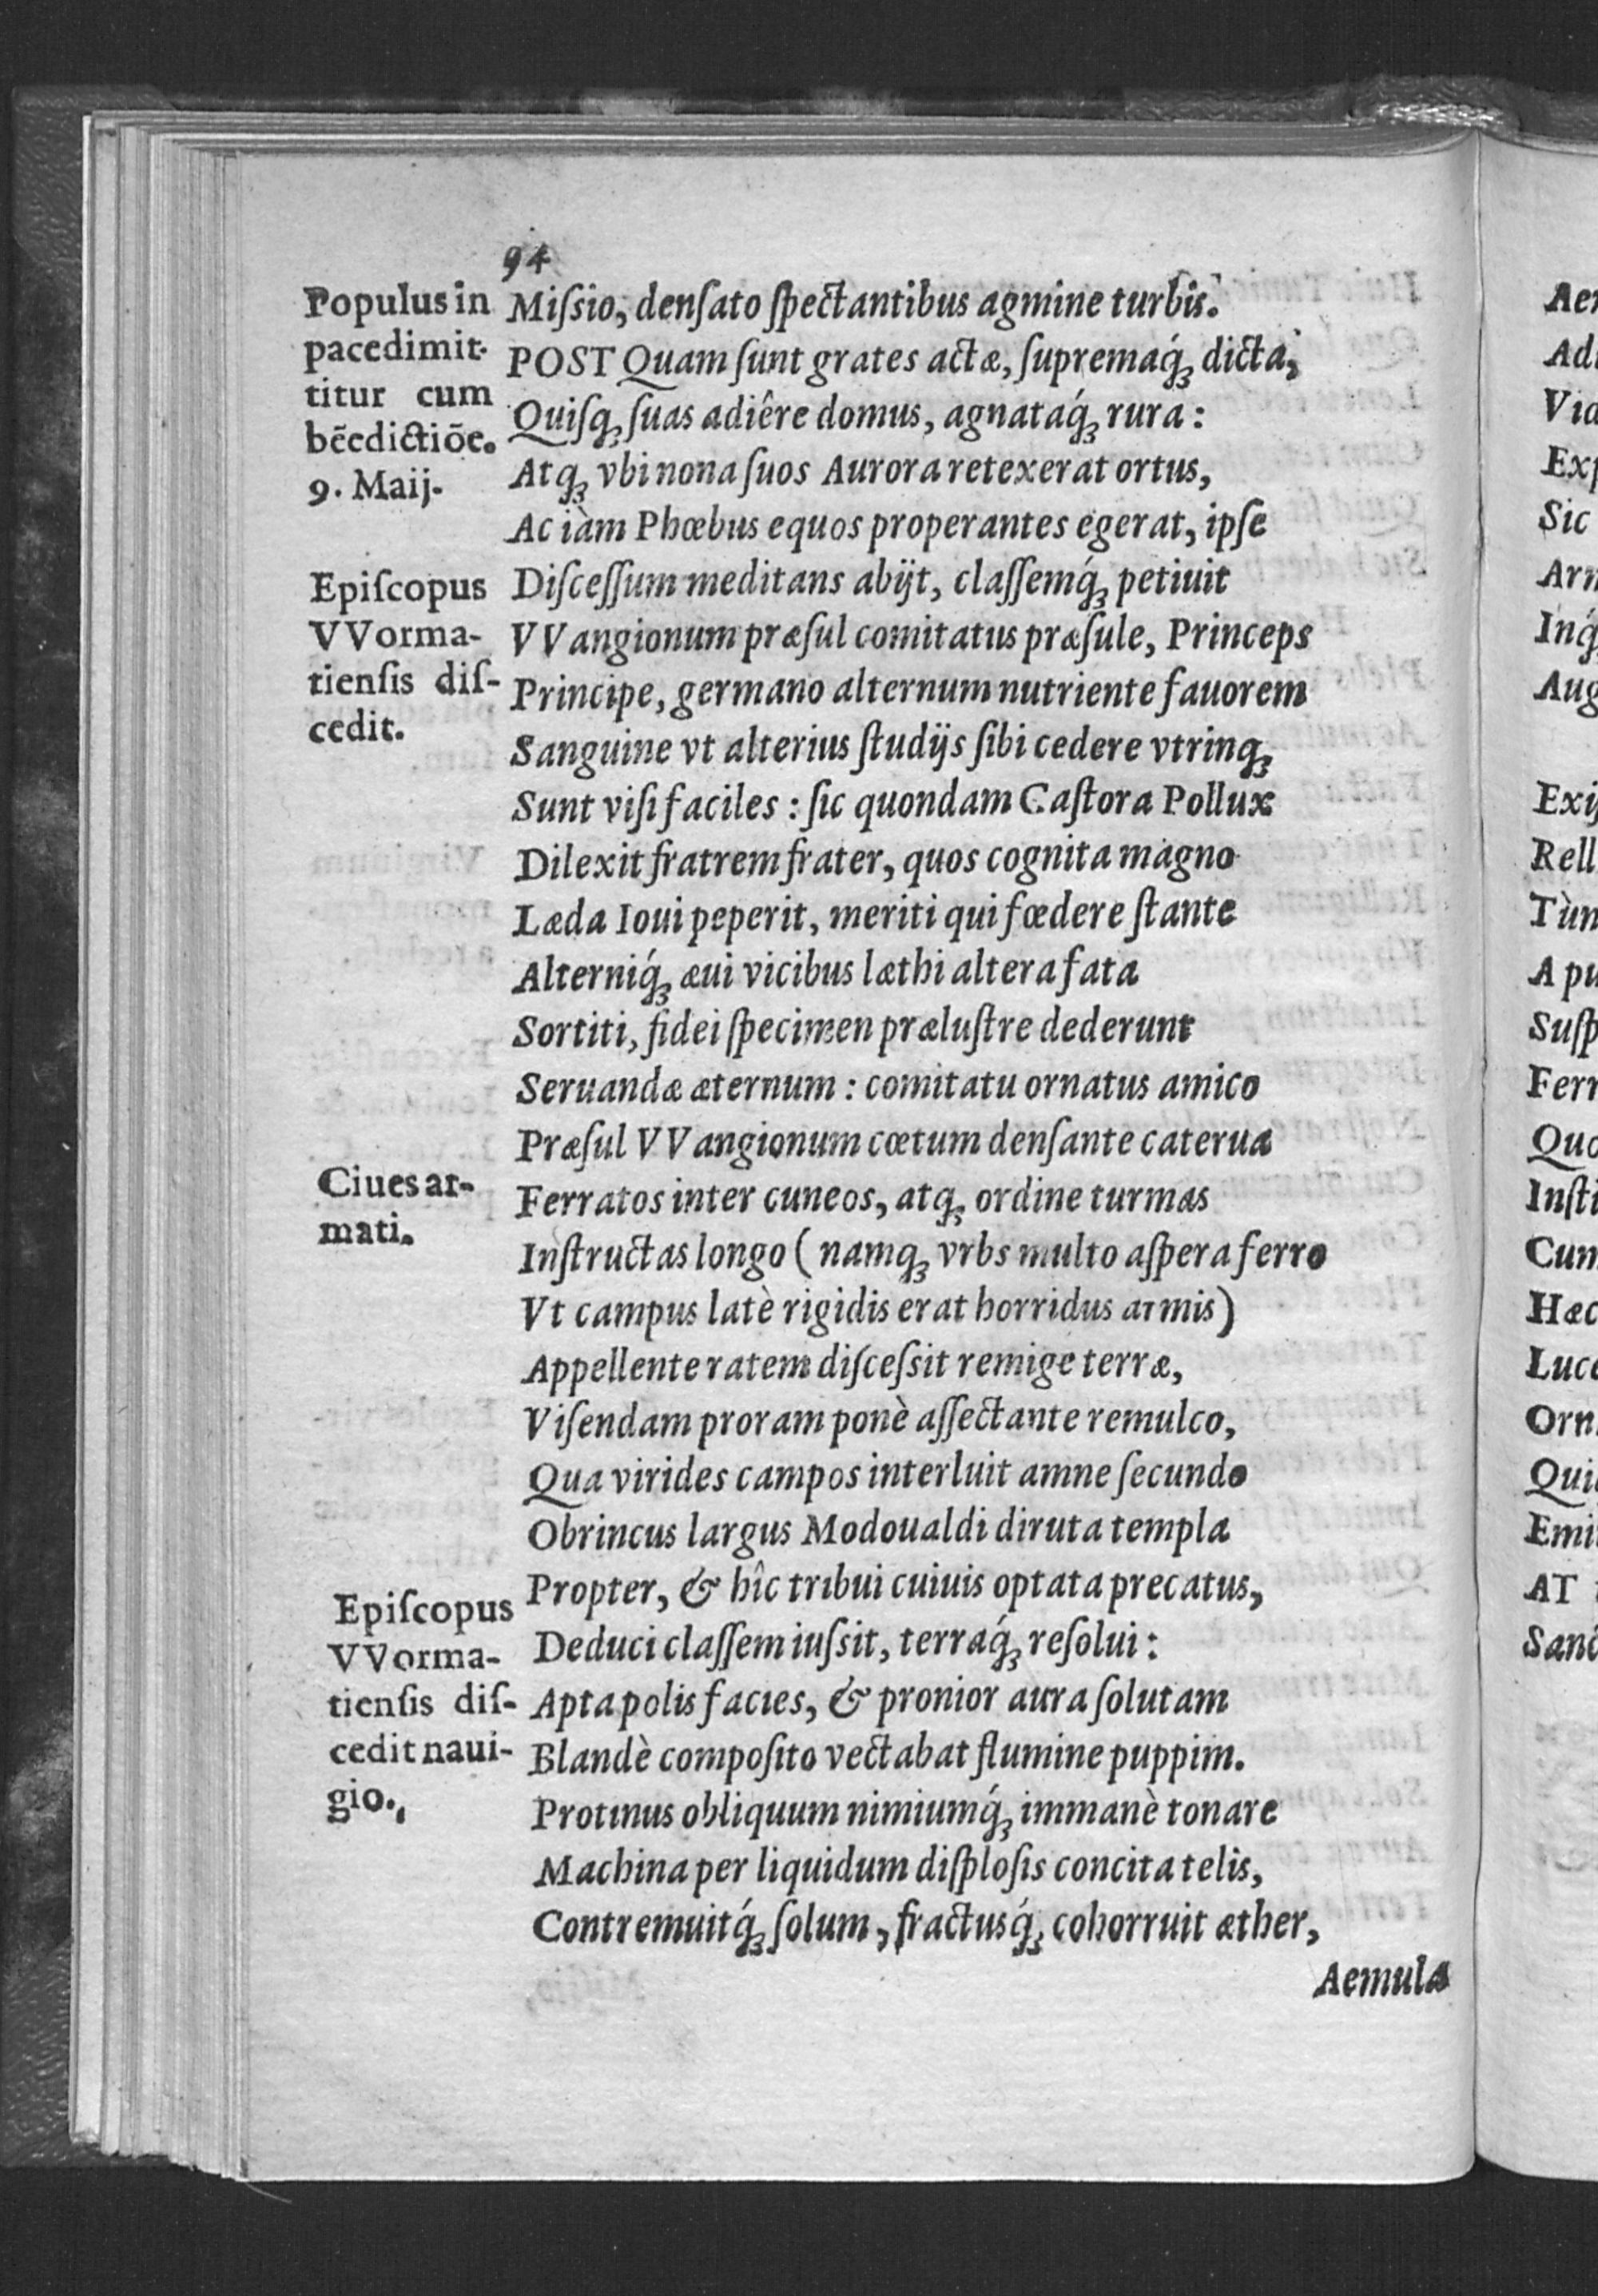 94
Populus in
pacedimit-
titur cum
bēedictiōe.
9. Maij.
Miſsio, denſato ſpectantibus agmine turbis.
POST Quam ſunt grates actæ, ſupremaq́ꝫ dicta,
Quiſqꝫ ſuas adiêre domus, agnataq́ꝫ rura:
Atqꝫ vbi nona ſuos Aurora retexerat ortus,
Ac iàm Phœbus equos properantes egerat, ipſe
Epiſcopus
VVorma-
tienſis diſ-
cedit.
Diſceſſum meditans abijt, claſſemq́ꝫ petiuit
VVangionum præſul comitatus præſule, Princeps
Principe, germano alternum nutriente fauorem
Sanguine vt alterius ſtudijs ſibi cedere vtrinqꝫ
Sunt viſi faciles: ſic quondam Caſtora Pollux
Dilexit fratrem frater, quos cognita magno
Læda Ioui peperit, meriti qui fœdere ſtante
Alterniq́ꝫ æui vicibus læthi altera fata
Sortiti, fidei ſpecimen præluſtre dederunt
Seruandæ æternum: comitatu ornatus amico
Præſul VVangionum cœtum denſante caterua
Ciues ar-
mati.
Ferratos inter cuneos, atqꝫ ordine turmas
Inſtructas longo (namqꝫ vrbs multo aſpera ferro
Vt campus latè rigidis erat horridus armis)
Appellente ratem diſceſsit remige terræ,
Viſendam proram ponè aſſectante remulco,
Qua virides campos interluit amne ſecundo
Obrincus largus Modoualdi diruta templa
Propter, & hîc tribui cuiuis optata precatus,
Epiſcopus
VVorma-
tienſis diſ-
cedit naui-
gio.
Deduci claſſem iuſsit, terraq́ꝫ reſolui:
Apta polis facies, & pronior aura ſolutam
Blandè compoſito vectabat flumine puppim.
Protinus obliquum nimiumq́ꝫ immanè tonare
Machina per liquidum diſploſis concita telis,
Contremuitq́ꝫ ſolum, fractusq́ꝫ cohorruit æther,
Aemula
Ad
Via
Exp
Sic
Arm
Inq́
Aug
Rell
Tùm
A pu
Suſp
Ferr
Quo
Inſti
Cum
Hæc
Luce
Orn
Emi
AT
Sanc